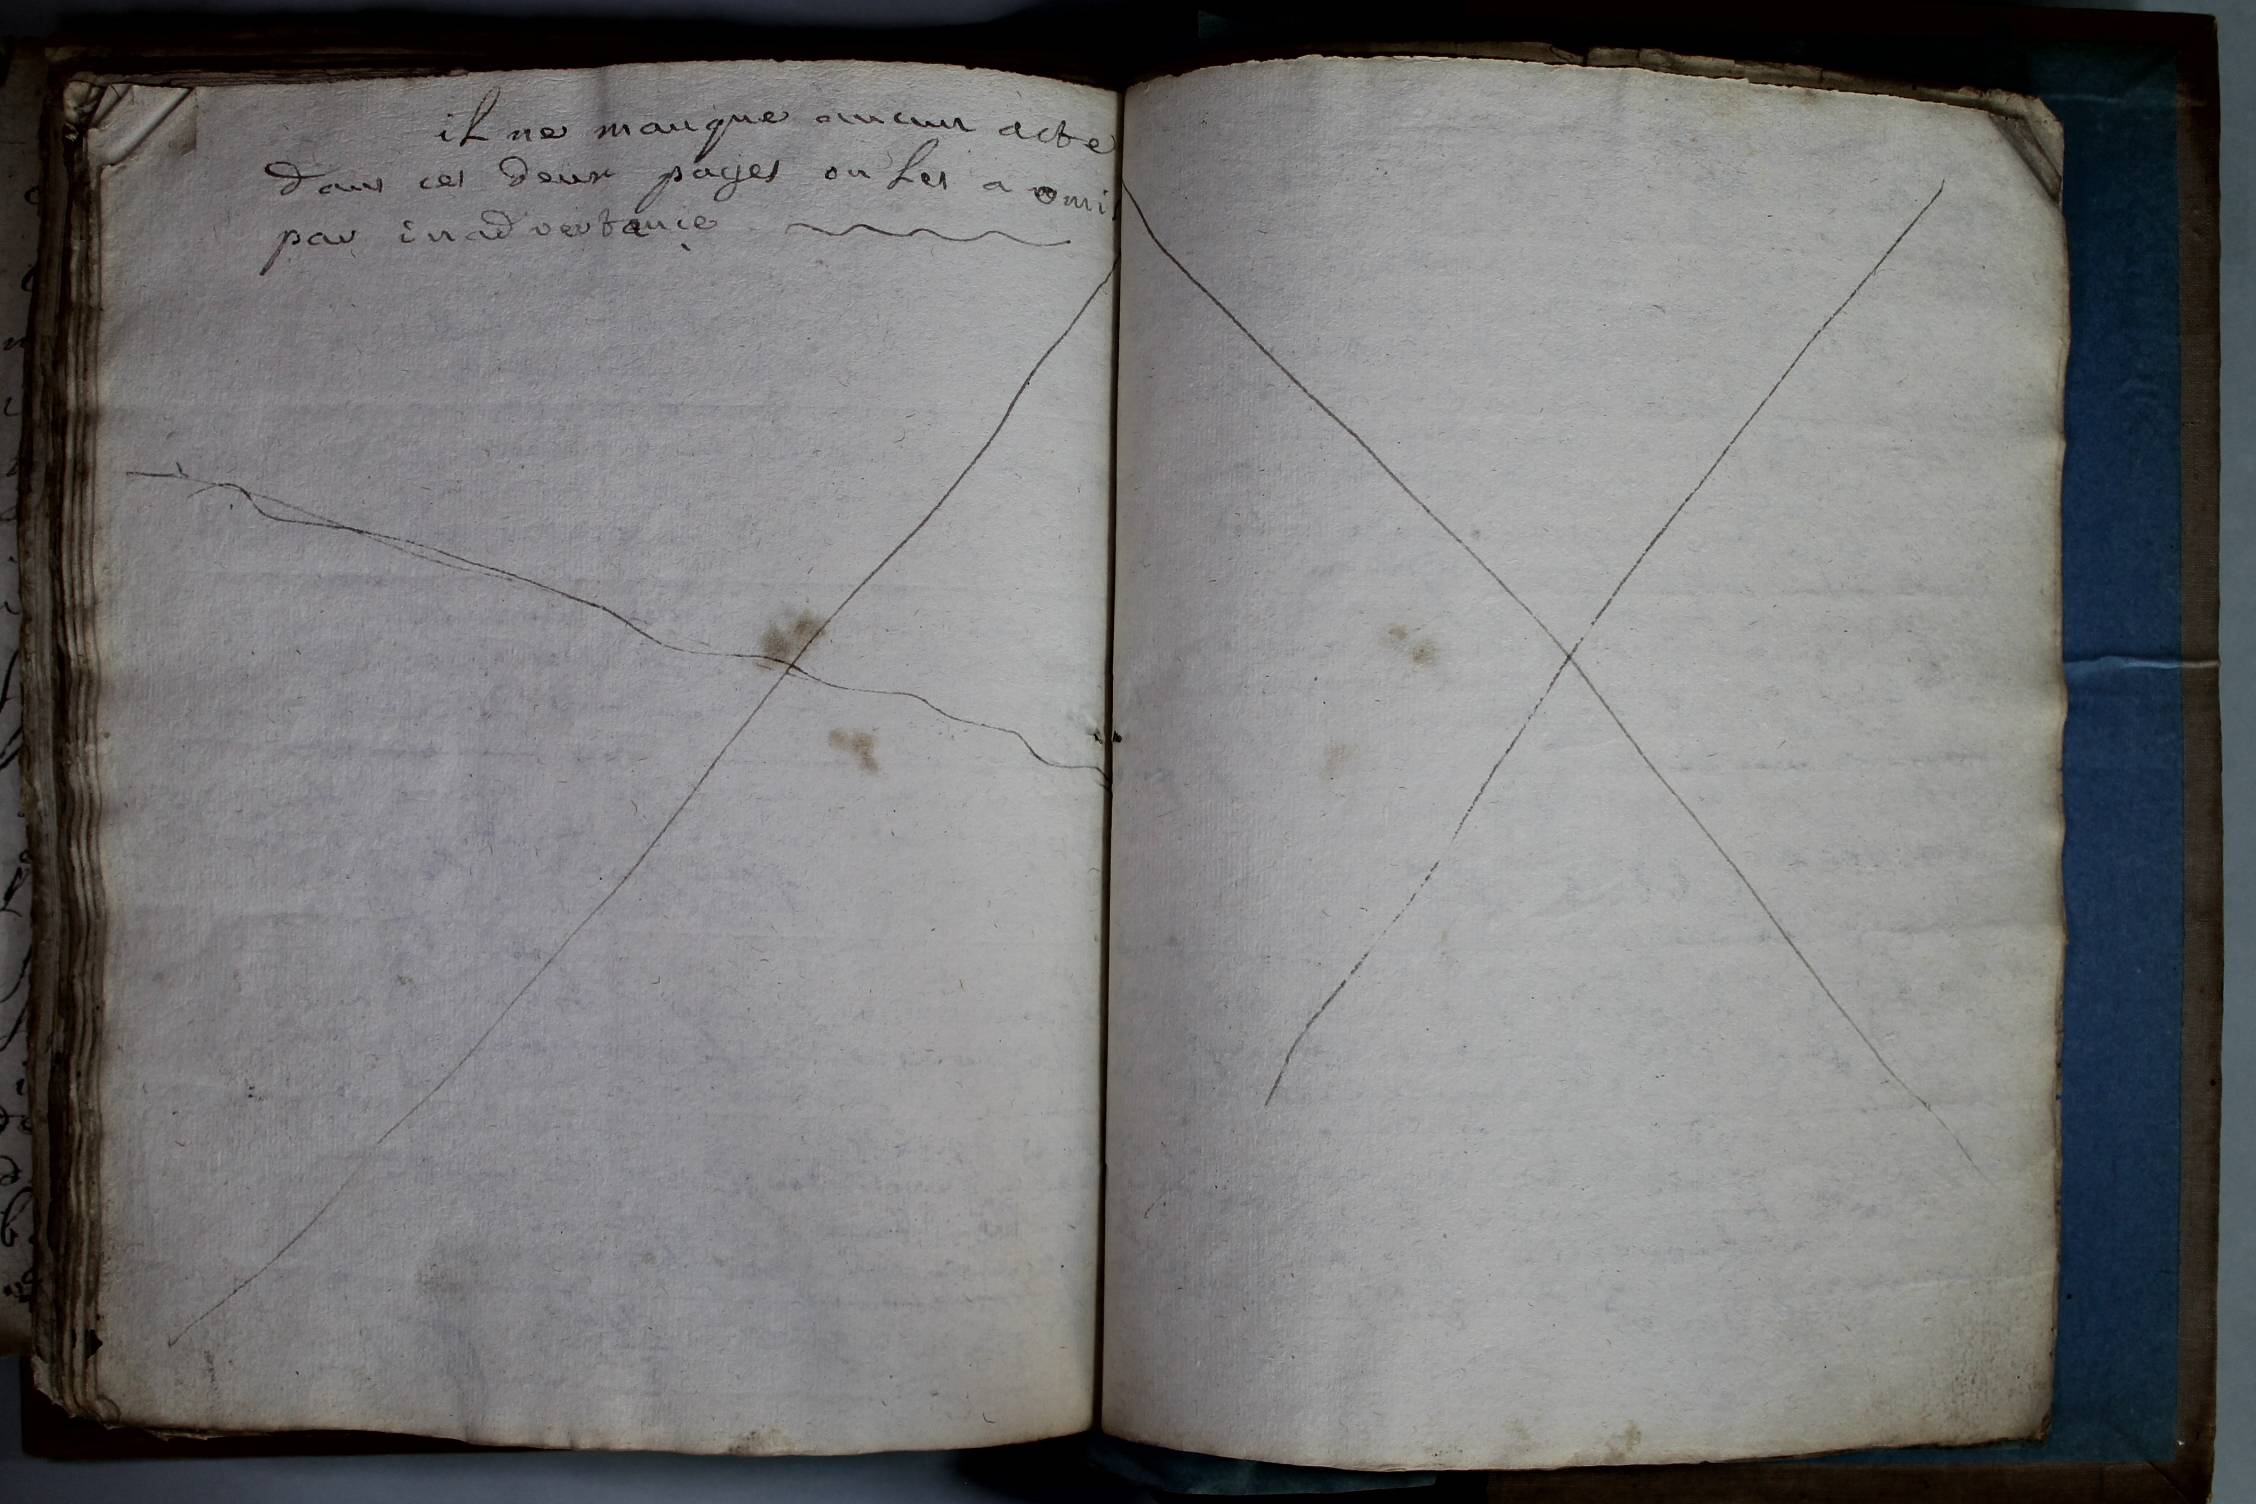 il ne manque aucun acte
dans ces deux pages on les a omis
par inadvertance